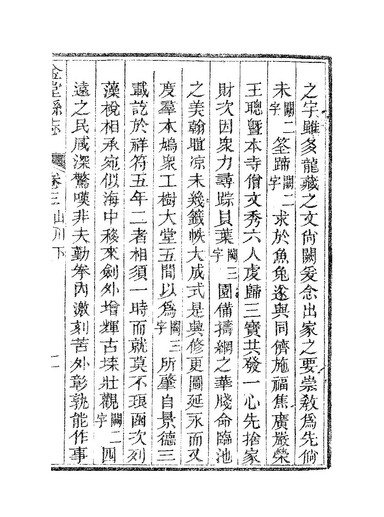 之字雖多龍藏之文尙闕爰念出家之要崇敎爲先倘
未闕二字筌蹄闕二字求於魚兔遂與同儕施福焦廣嚴榮
王聰曁本寺僧文秀六人虔歸三寶共發一心先捨家
財次因衆力尋踪貝葉闕三字園備擣網之華牋命臨池
之美翰暄凉未幾籤帙大成式是輿修更圖延永而又
度㝷木鳩衆工樹大堂五間以爲闕三字所肇自景德三
載訖於祥符五年二者相須一時而就莫不琅函次列
藻梲相承宛似海中移來劍外增輝古埭壯觀闕二字四
遠之民咸深驚嘆非夫勤拳內激刻苦外彰孰能作事
金堂縣志 卷三 山川下